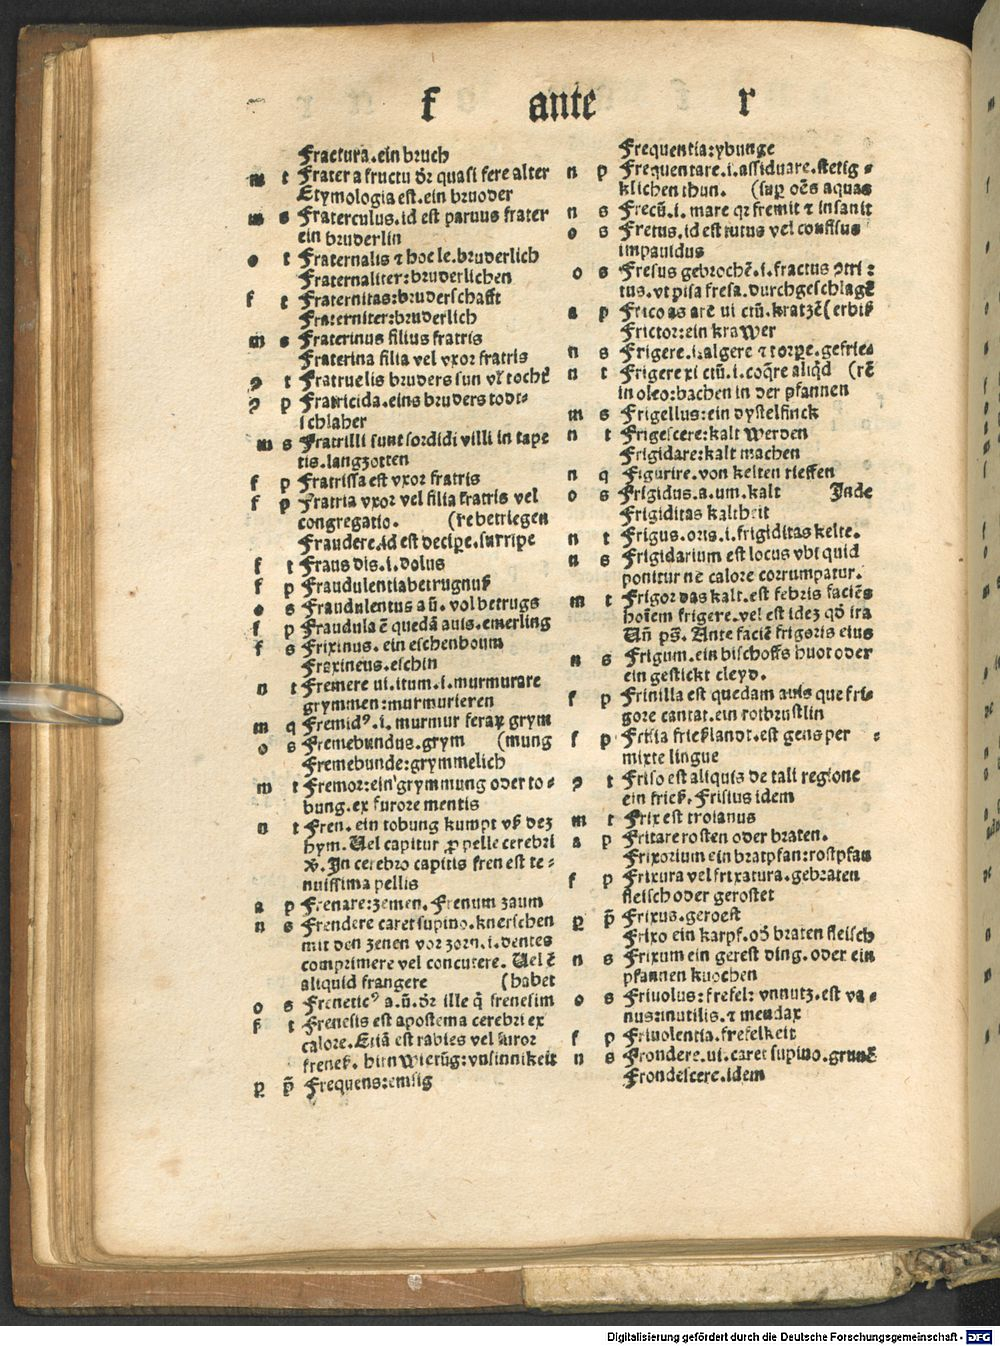 f ante r
Fractura.ein bruch
m t Frater a fructu dr̄ quasi fere alter
Etymologia est.ein bruoder
m s Fraterculus.id est paruus frater
ein bruderlin
o t Fraternalis ⁊ hoc le.bruderlich
Fraternaliter:bruderlichen
f t Fraternitas:bruderschafft
Fraterniter:bruderlich
m s Fraterinus filius fratris
Fraterina filia vel vxor fratris
ꝯ t Fratruelis bruders sun vl' tocht'
ꝯ p Fratricida.eins bruders todt-
schlaher
m s Fratrilli sunt sordidi villi in tape
tis.langzotten
f p Fratrissa est vxor fratris
f p Fratria vxor vel filia fratris vel
congregatio. (re betriegen
Fraudere.id est deciꝑe.surripe
f t Fraus dis.i.dolus
f p Fraudulentia betrugnuß
o s Fraudulentus a ū. vol betrugs
f p Fraudula ē quedā auis.emerling
f s Frixinus. ein eschenboum
Fraxineus.eschin
n t Fremere ui.itum.i.murmurare
grymmen:murmurieren
m q Fremidꝰ.i.murmur feraꝝ grym
o s Fremebundus.grym (mung
Fremebunde:grymmelich
m t Fremor:ein grymmung oder to-
bung.ex furore mentis
n t Fren. ein tobung kumpt vß dez
hyrn. Uel capitur ꝓ pelle cerebri
Ꝟ. In cerebro capitis fren est te-
nuissima pellis
a p Frenare:zemen. Frenum zaum
n s Frendere caret supino.knerschen
mit den zenen vor zorn.i.dentes
comprimere vel concutere. Uel ē
aliquid frangere (habet
o s Freneticꝰ a.ū.dr̄ ille q̇ frenesim
f t Frenesis est apostema cerebri ex
calore. Etiā est rabies vel furor
freneß. hirn wietūg:vnsinnikeit
ꝑ p̄ Frequens:emsig
Frequentia:ybunge
n p Frequentare.i.assiduare.stetig-
klichen thun. (suꝑ oēs aquas
n s Frecū.i. mare qr fremit ⁊ insanit
o s Fretus.id est tutus vel confisus
impauidus
o s Fresus gebrochē.i.fractus ꝯtri:
tus.vt pisa fresa.durchgeschlagē
a p Frico as are ui ctū.kratzē (erbiß
Frictor:ein krawer
n s Frigere.i.algere ⁊ torꝑe.gefrie-
n t Frigere xi ctū.i.coq̄re aliq̇d (rē
in oleo:bachen in der pfannen
m s Frigellus:ein dystelfinck
n t Frigescere:kalt werden
Frigidare:kalt machen
n q Figurire.von kelten rieffen
o s Frigidus.a.um.kalt Inde
Frigiditas kaltheit
n t Frigus.oris.i.frigiditas kelte.
n s Frigidarium est locus vbi quid
ponitur ne calore corrumpatur.
m t Frigor das kalt.est febris faciēs
hoīem frigere.vel est idez qd̄ ira
Uñ ps̄. Ante faciē frigoris eius
n s Frigum.ein bischoffs huot oder
ein gestickt cleyd.
f p Frinilla est quedam auis que fri-
gore cantat.ein rotbrustlin
f p Frisia frießlandt.est gens per-
mixte lingue
ꝯ t Friso est aliquis de tali regione
ein frieß. Frisius idem
m t Frix est troianus
a p Fritare rosten oder braten.
Frixorium ein bratpfan:rostpfan
f p Frixura vel frixatura.gebraten
fleisch oder gerostet
ꝑ p̄ Frixus.geroest
Frixo ein karpf.od' braten fleisch
n s Frixum ein gerest ding.oder ein
pfannen kuochen
o s Friuolus:frefel:vnnutz.est va-
nus:inutilis.⁊ mendax
f p Friuolentia.frefelkeit
n s Frondere.ui.caret supino.grunē
Frondescere.idem
Digitalisierung gefördert durch die Deutsche Forschungsgemeinschaft - DFG